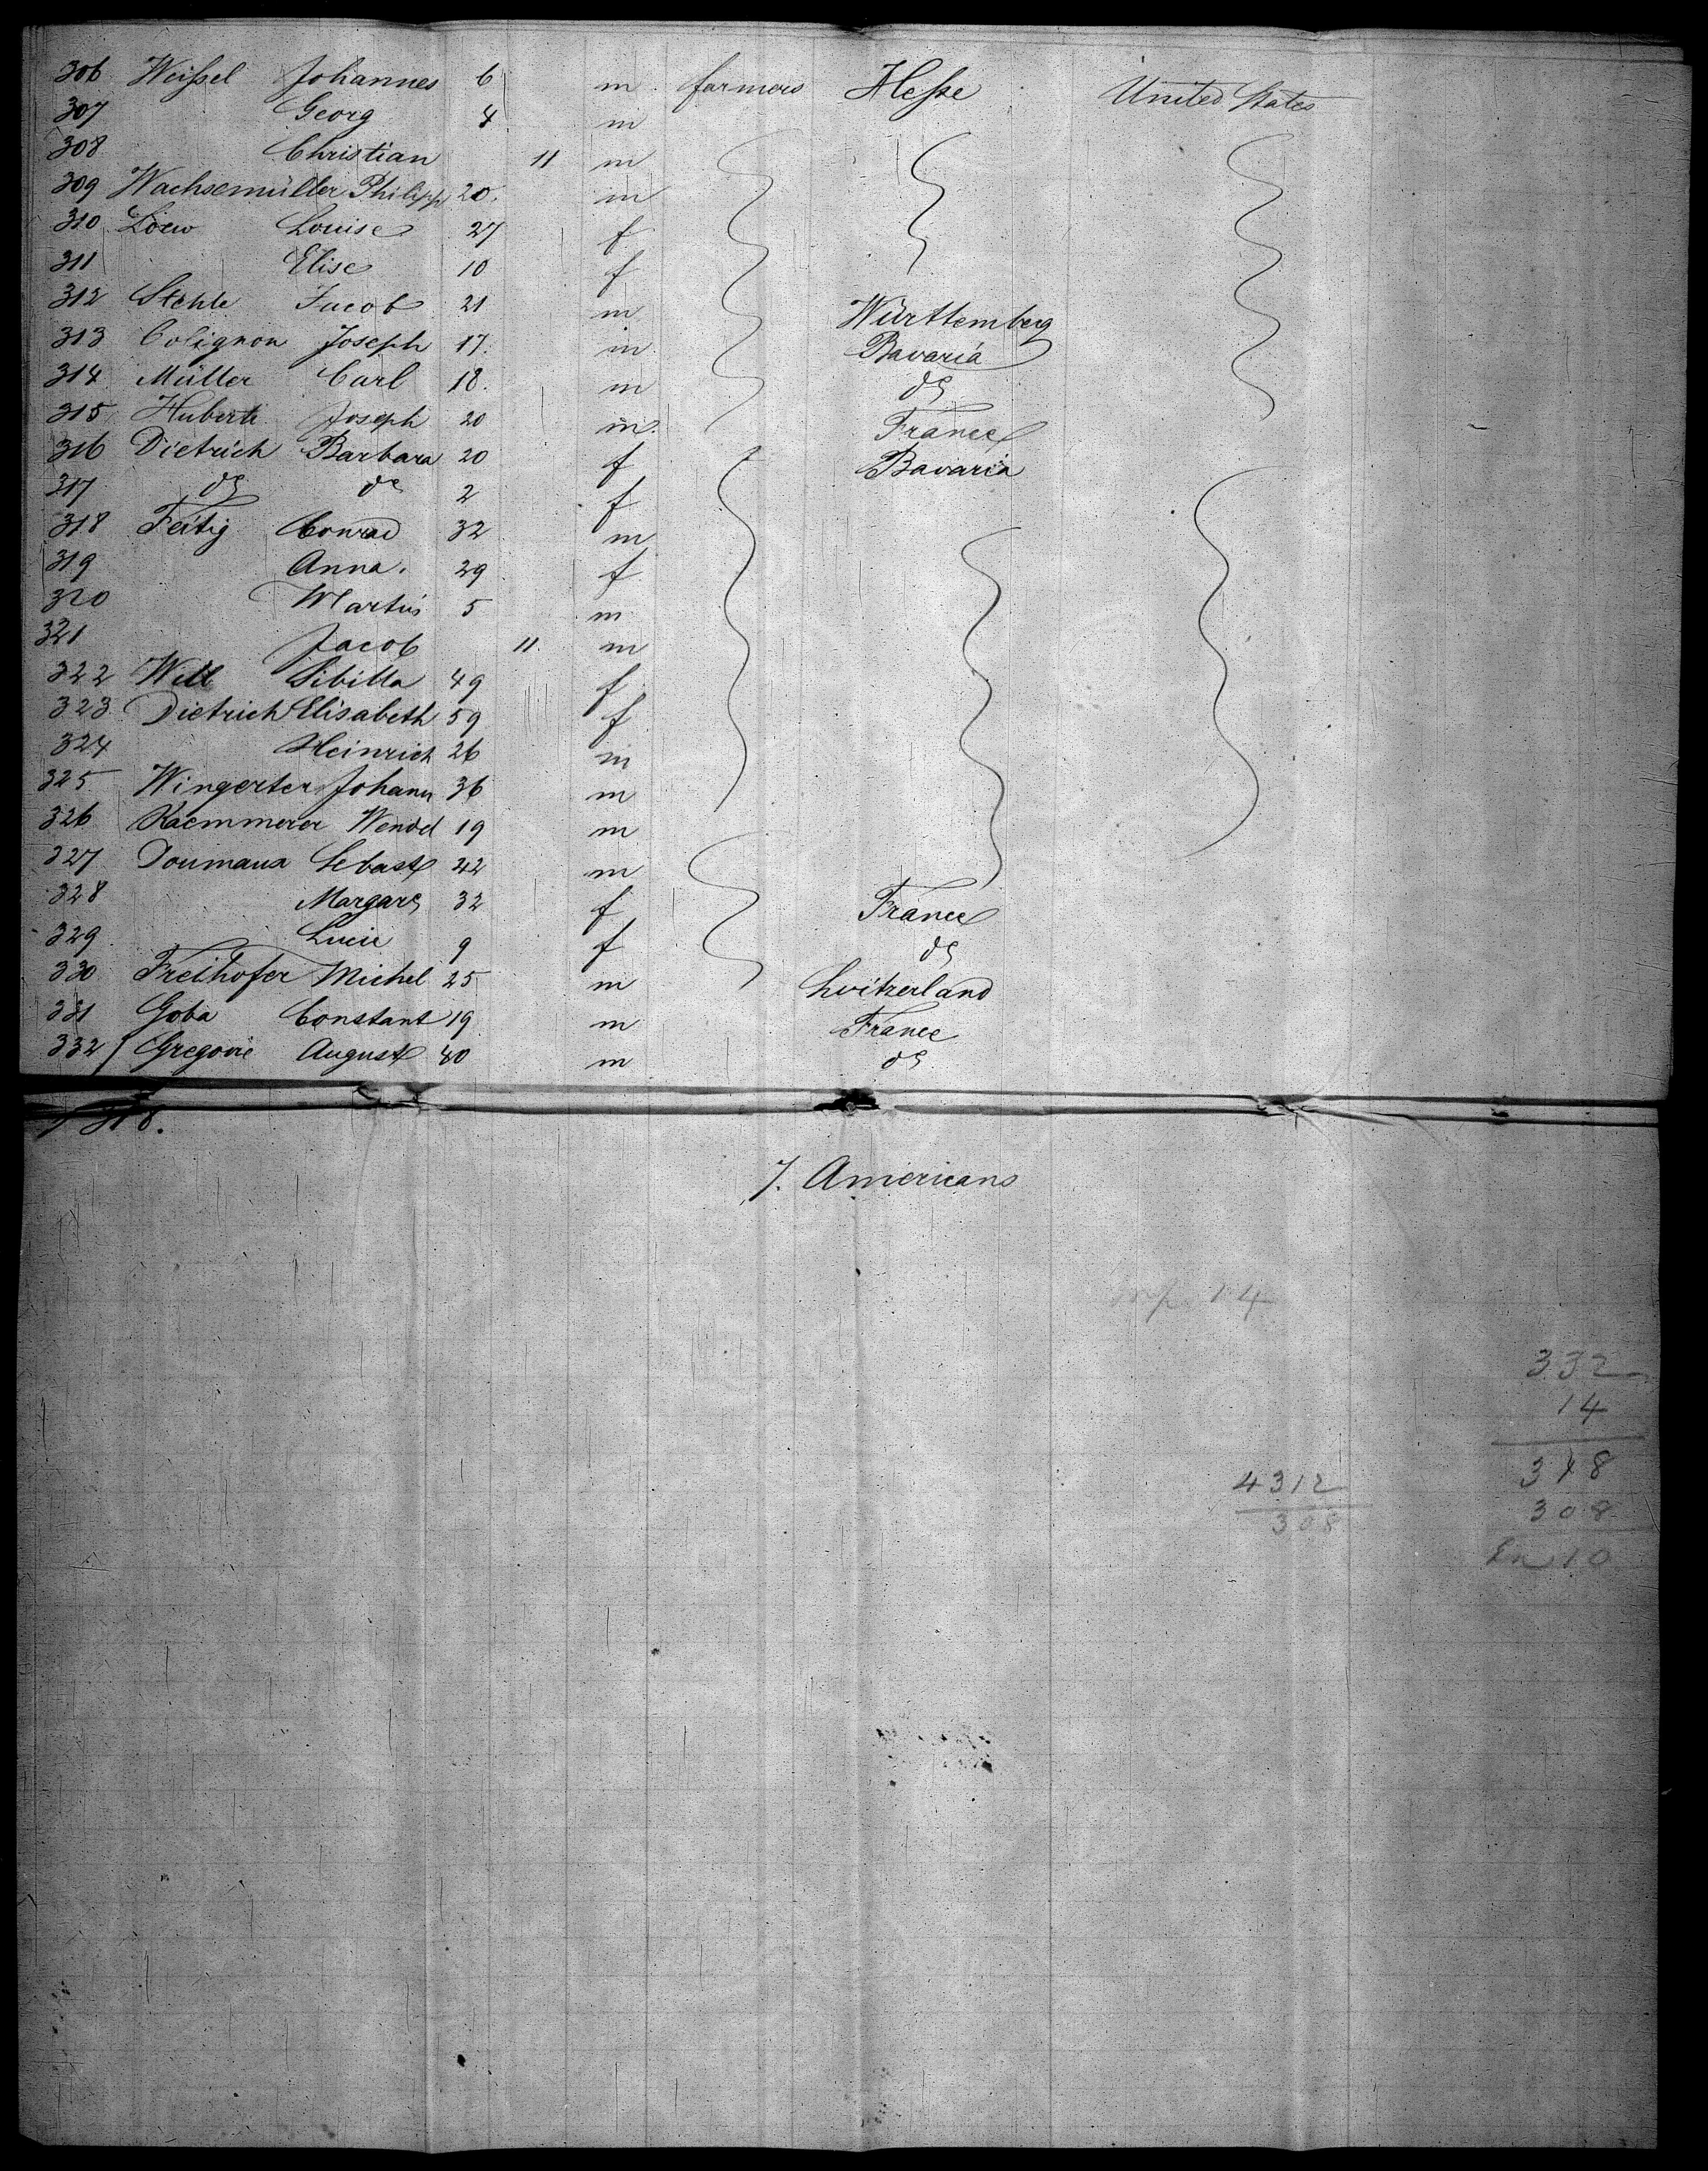 306 Weißel Johannes 6 m farmers Heße United States
307 Georg 4 m
308 Christian 11 m
309 Wachsemüller Philipp 20. m
310 Loew Louise 27 f
311 Elise 10 f
312 Stehle Jacob 21 m Württemberg
313 Colignon Joseph 17. m Bavaria
314 Müller Carl 18. m do
315 Huberti Joseph 20 m. France
316 Dietrich Barbara 20 f Bavaria
317 do do 2 f
318 Feitig Conrad 32 m
319 Anna. 29 f
320 Martin 5 m
321 Jacob 11. m
322 Will Sibilla 49 f
323 Dietrich Elisabeth 59 f
324 Heinrich 26 m
325 Wingerter Johann 36 m
326 Kaemmerer Wendel 19 m
327 Doumaux Sebast 42 m
328 Margar 32 f France
329 Lucie 9 f do
330 Freihofer Michel 25 m Switzerland
331 Goba Constant 19 m France
332 Gregoire August 40 m do
318.
7. Americans
14
332
14
318
4312
308
308
10